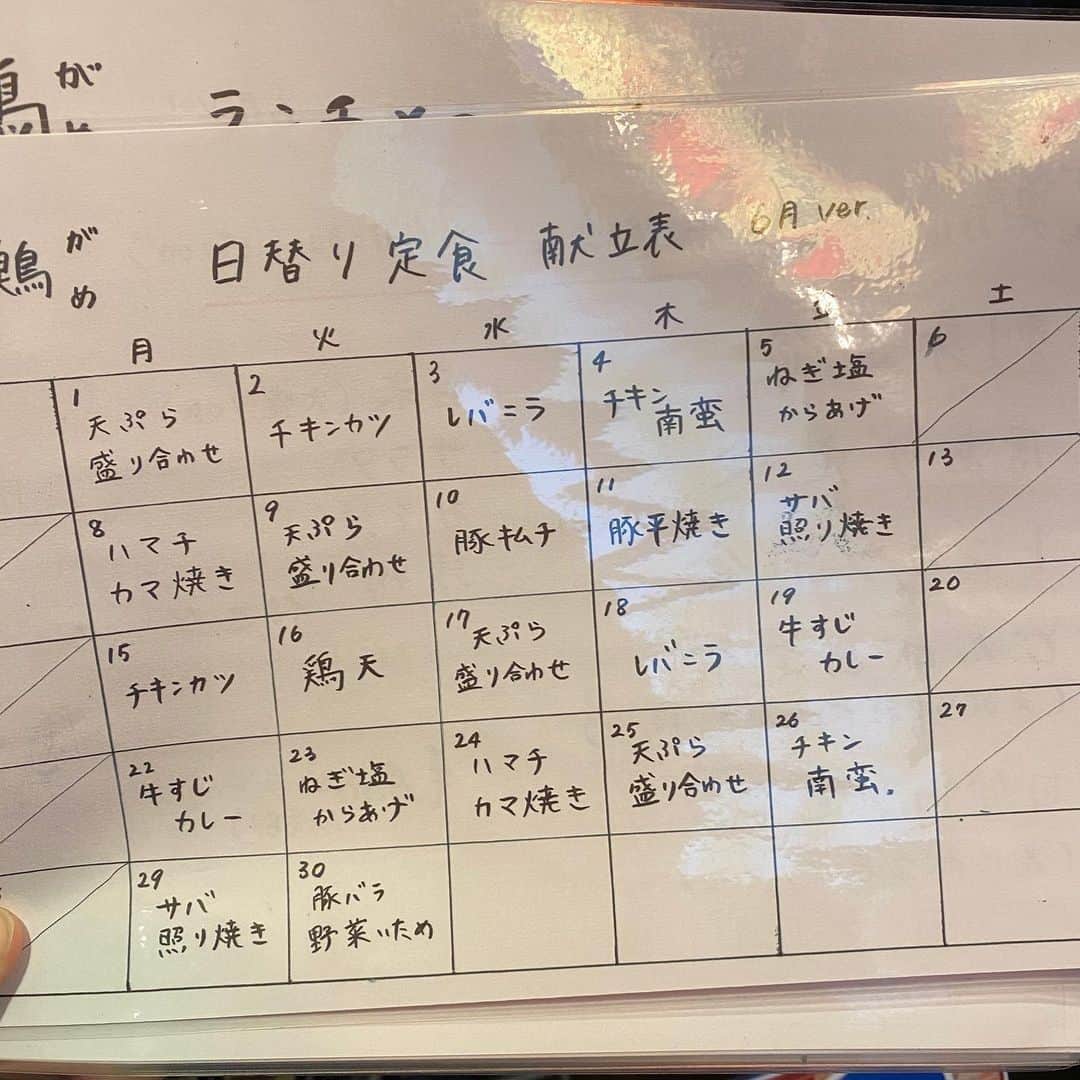 鶏 がめ ランチメ
鶏 がめ 日替り定食 献立表 6月 ver.
月 火 水 木 金 土
1 天ぷら
盛り合わせ
2 チキンカツ
3 レバニラ
4 チキン
南蛮
5 ねぎ塩
からあげ
6
8 ハマチ
カマ焼き
9 天ぷら
盛り合わせ
10 豚キムチ
11 豚平焼き
12 サバ
照り焼き
13
15 チキンカツ
16 鶏天
17 天ぷら
盛り合わせ
18 レバニラ
19 牛すじ
カレー
20
22 牛すじ
カレー
23 ねぎ塩
からあげ
24 ハマチ
カマ焼き
25 天ぷら
盛り合わせ
26 チキン
南蛮.
27
29 サバ
照り焼き
30 豚バラ
野菜いため